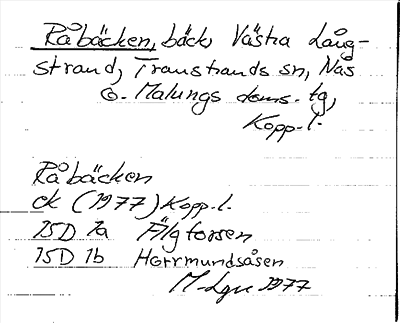 Råbäcken, bäck, Västra Lång-
strand, Transtrands sn, Nås
o. Malungs doms. tg,
Kopp. l.
Råbäcken
ek (1977) Kopp. l.
15D 7a Älgforsen
15D 1b Horrmundsåsen
M-Lgn 1977